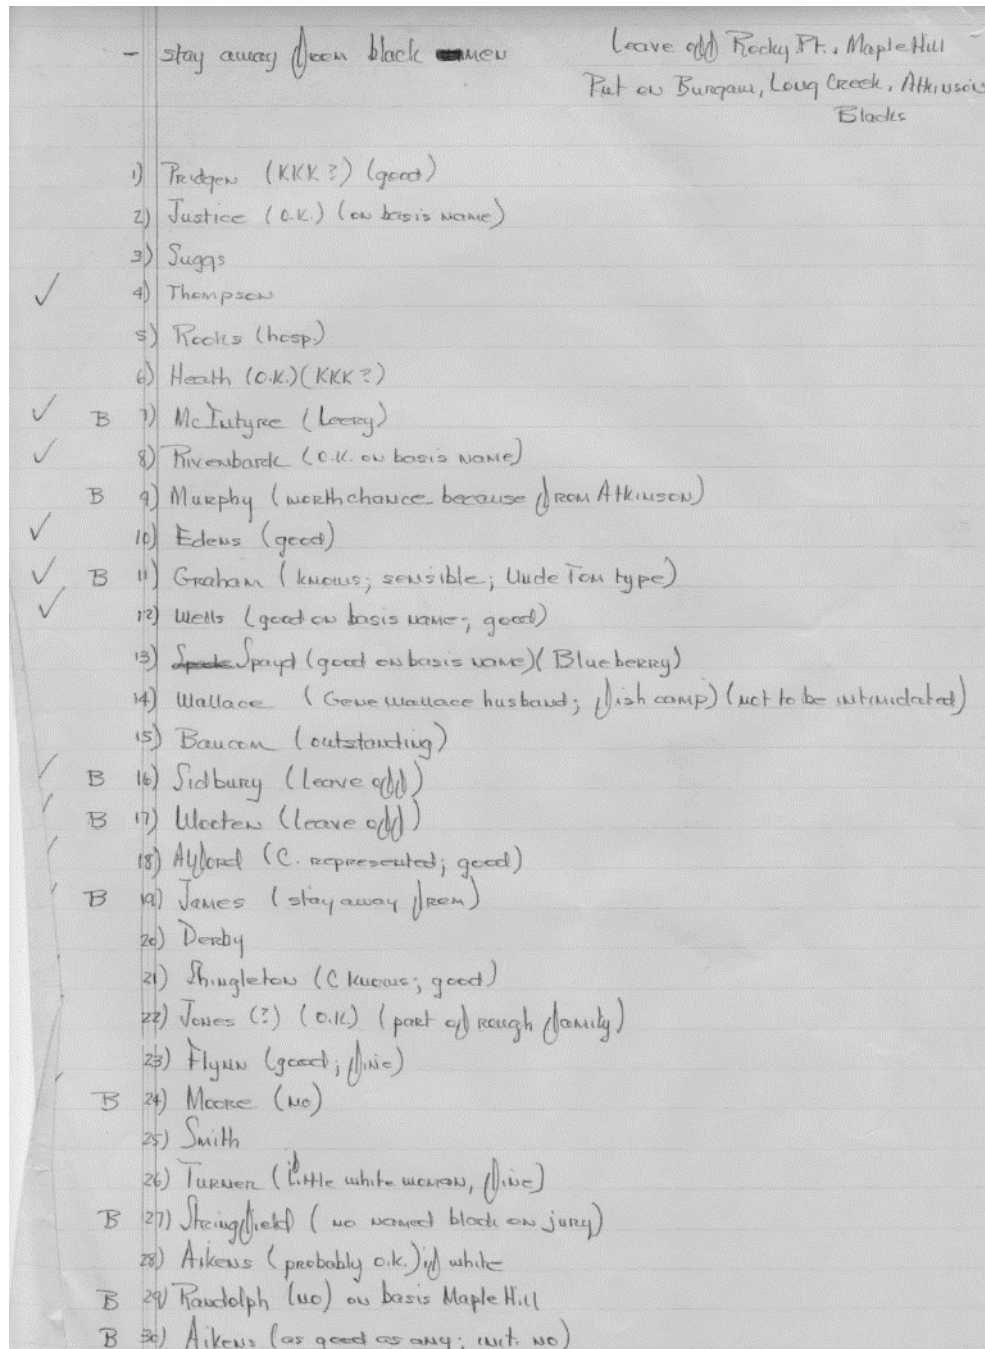 - stay away from black men
Leave off Rocky Pt., Maple Hill
Put on Burgaw, Long Creek, Atkinson
Blacks
1) Pridgen (KKK?) (good)
2) Justice (O.K.) (on basis name)
3) Suggs
✓ 4) Thompson
5) Rooks (hosp.)
6) Heath (O.K.) (KKK?)
✓ B 7) McIntyre (Leery)
✓ 8) Rivenbark (O.K. on basis name)
B 9) Murphy (worth chance because from Atkinson)
✓ 10) Edens (good)
✓ B 11) Graham (knows; sensible; Uncle Tom type)
✓ 12) Wells (good on basis name; good)
13) Spayd (good on basis name) (Blueberry)
14) Wallace (Gene Wallace husband; fish camp) (not to be intimidated)
15) Baucom (outstanding)
✓ B 16) Sidbury (leave off)
✓ B 17) Wooten (leave off)
✓ 18) Alford (C. represented; good)
✓ B 19) James (stay away from)
20) Derby
21) Shingleton (C knows; good)
22) Jones (?) (O.K.) (part of rough family)
23) Flynn (good; fine)
✓ B 24) Moore (no)
25) Smith
26) Turner (little white woman, fine)
B 27) Stringfield (no named black on jury)
28) Aikens (probably o.k.) if white
B 29) Randolph (no) on basis Maple Hill
B 30) Aikens (as good as any; init. no)